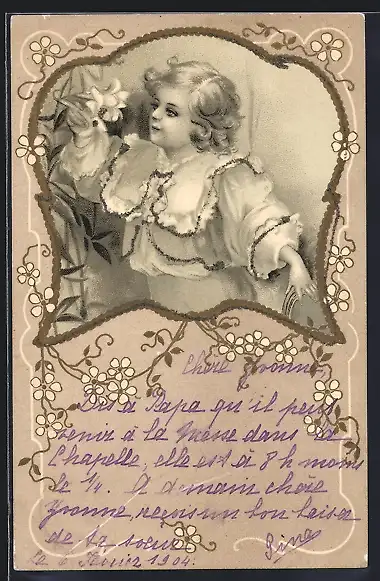 Chère Yvonne,
Dis à Papa qu'il peut
venir à la Messe dans la
Chapelle, elle est à 8 h moins
le ¼. A demain chère
Yvonne, reçois un bon baiser
de ta sœur
le 6 Février 1904.